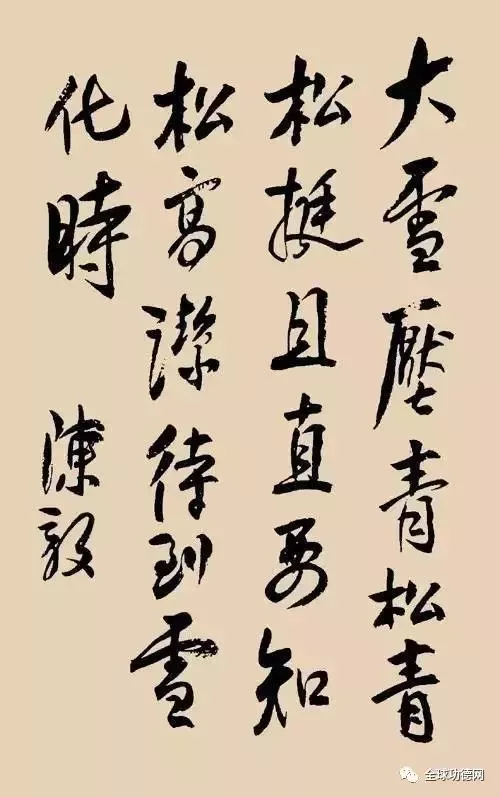 大雪壓青松青
松挺且直要知
松高潔待到雪
化時
陳毅
全球功德网